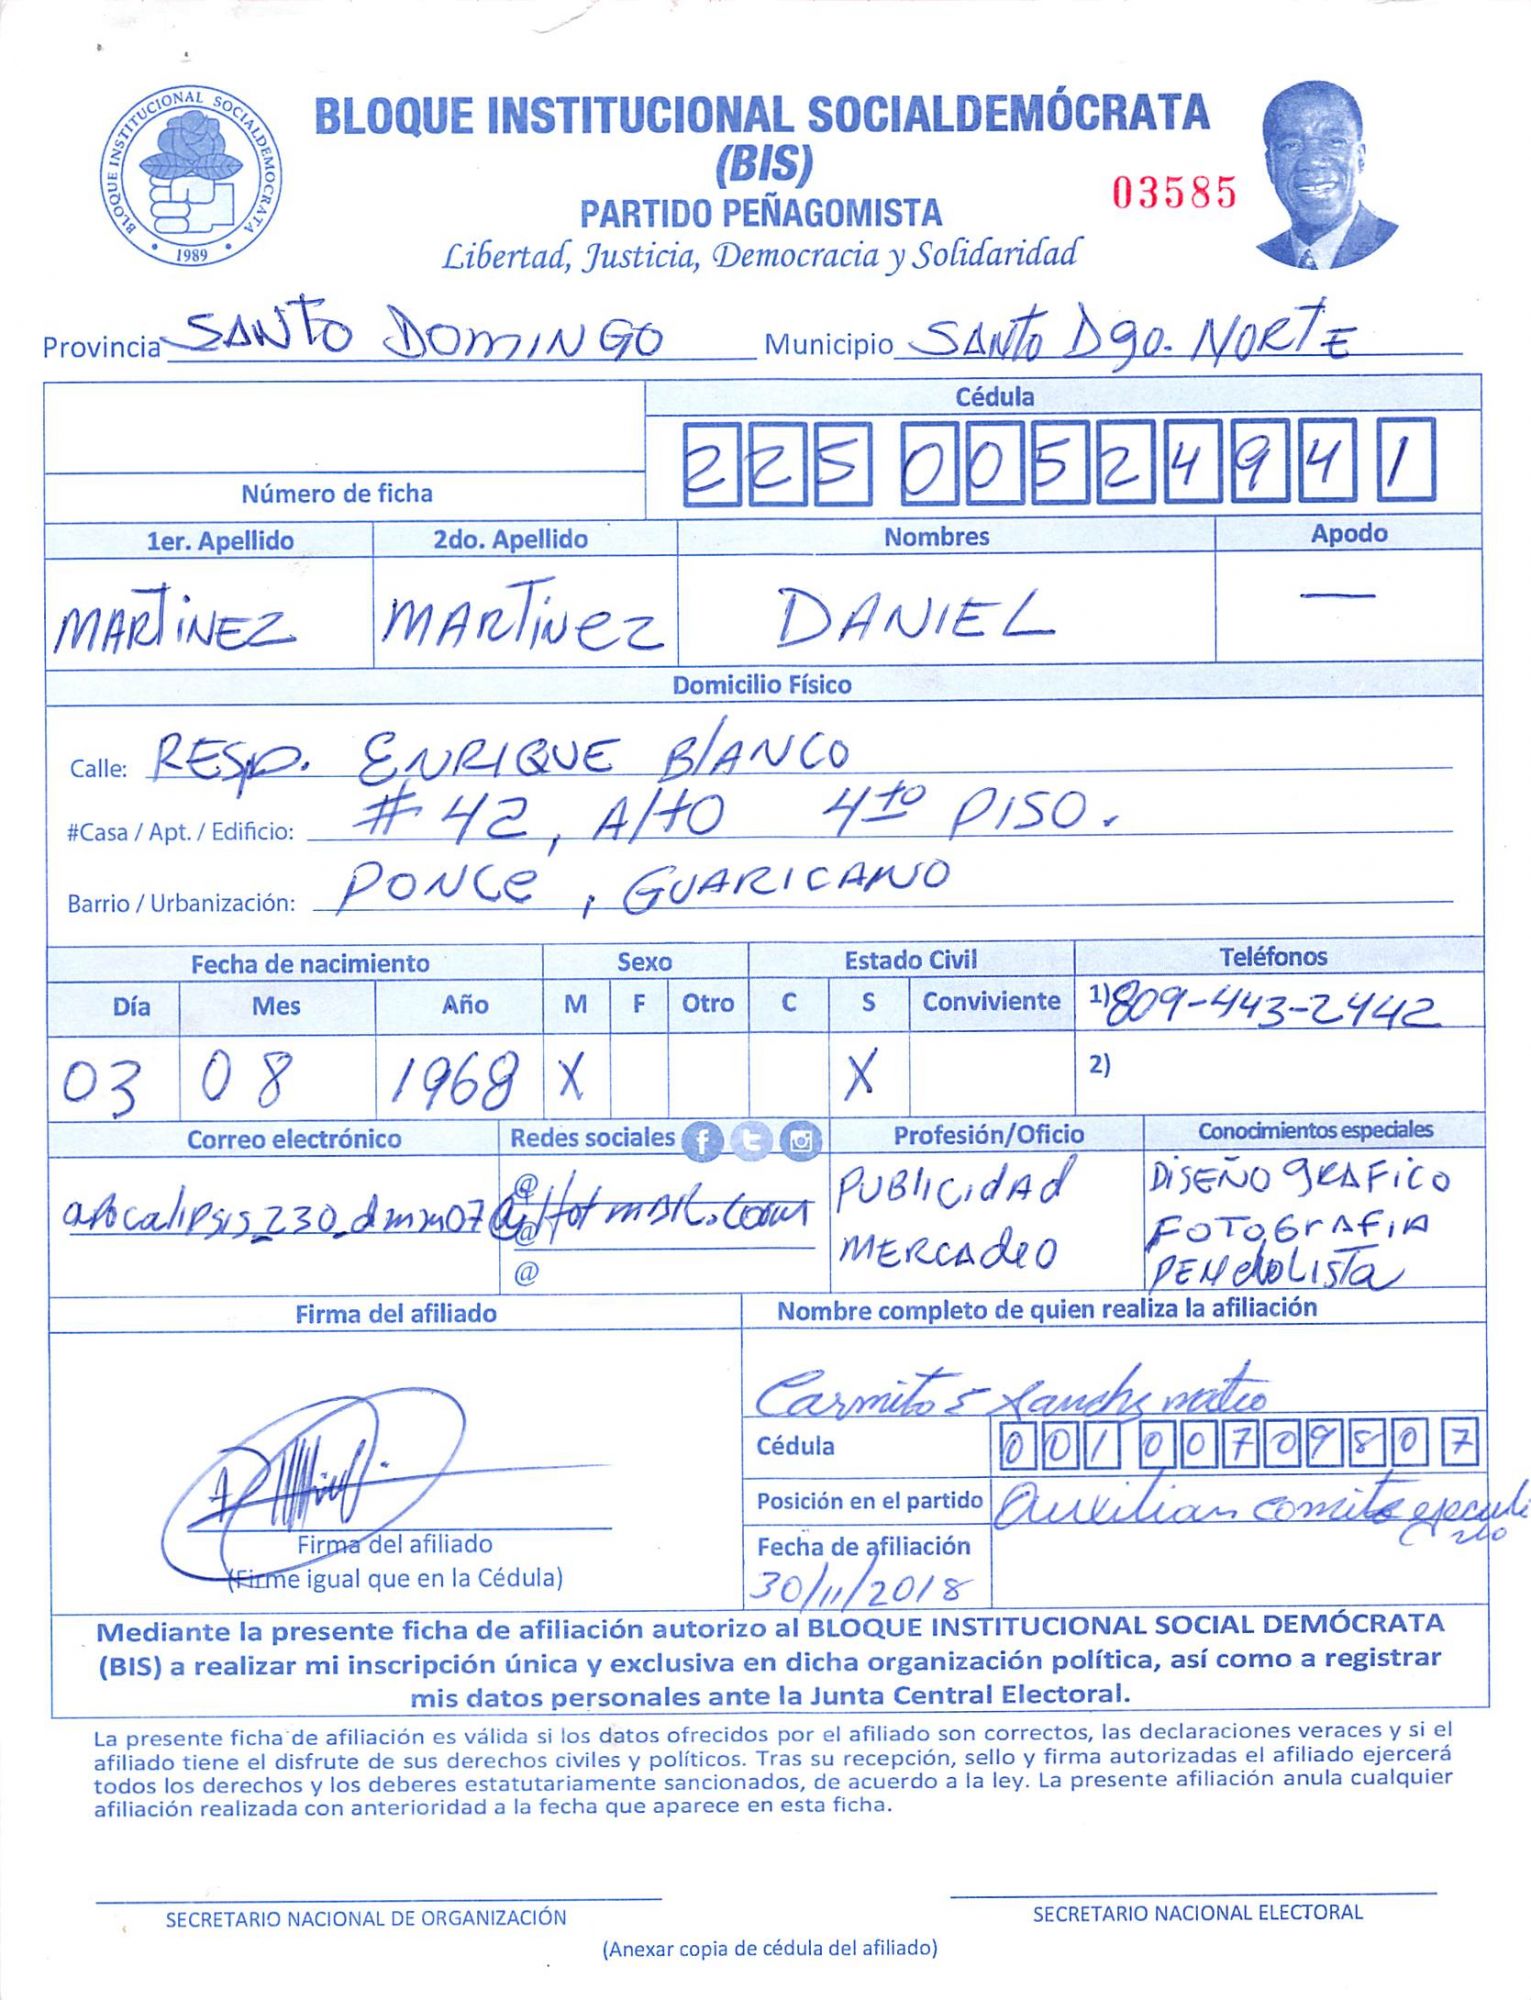 BLOQUE INSTITUCIONAL SOCIALDEMOCRATA
1989
BLOQUE INSTITUCIONAL SOCIALDEMÓCRATA
(BIS)
PARTIDO PEÑAGOMISTA
03585
Libertad, Justicia, Democracia y Solidaridad
Provincia SANTO DOMINGO Municipio SANTO Dgo. NORTE
Cédula
225 0052494 1
Número de ficha
1er. Apellido 2do. Apellido Nombres Apodo
MARTINEZ MARTINEZ DANIEL —
Domicilio Físico
Calle: RESP. ENRIQUE BLANCO
#Casa / Apt. / Edificio: # 42, Alto 4to PISO.
Barrio / Urbanización: PONCE, GUARICANO
Fecha de nacimiento Sexo Estado Civil Teléfonos
Día Mes Año M F Otro C S Conviviente 1) 809-443-2442
03 08 1968 X X 2)
Correo electrónico Redes sociales Profesión/Oficio Conocimientos especiales
apocalipsis_230_dmm07@Hotmail.com
@
@
@
PUBLICIDAD
MERCADEO
DISEÑO GRAFICO
FOTOGRAFIA
PENDOLISTA
Firma del afiliado Nombre completo de quien realiza la afiliación
Carmito E Sanchz mateo
Cédula 001 0070980 7
Posición en el partido Auxiliar comite ejecutivo
Firma del afiliado
(Firme igual que en la Cédula)
Fecha de afiliación
30/11/2018
Mediante la presente ficha de afiliación autorizo al BLOQUE INSTITUCIONAL SOCIAL DEMÓCRATA
(BIS) a realizar mi inscripción única y exclusiva en dicha organización política, así como a registrar
mis datos personales ante la Junta Central Electoral.
La presente ficha de afiliación es válida si los datos ofrecidos por el afiliado son correctos, las declaraciones veraces y si el
afiliado tiene el disfrute de sus derechos civiles y políticos. Tras su recepción, sello y firma autorizadas el afiliado ejercerá
todos los derechos y los deberes estatutariamente sancionados, de acuerdo a la ley. La presente afiliación anula cualquier
afiliación realizada con anterioridad a la fecha que aparece en esta ficha.
SECRETARIO NACIONAL DE ORGANIZACIÓN SECRETARIO NACIONAL ELECTORAL
(Anexar copia de cédula del afiliado)